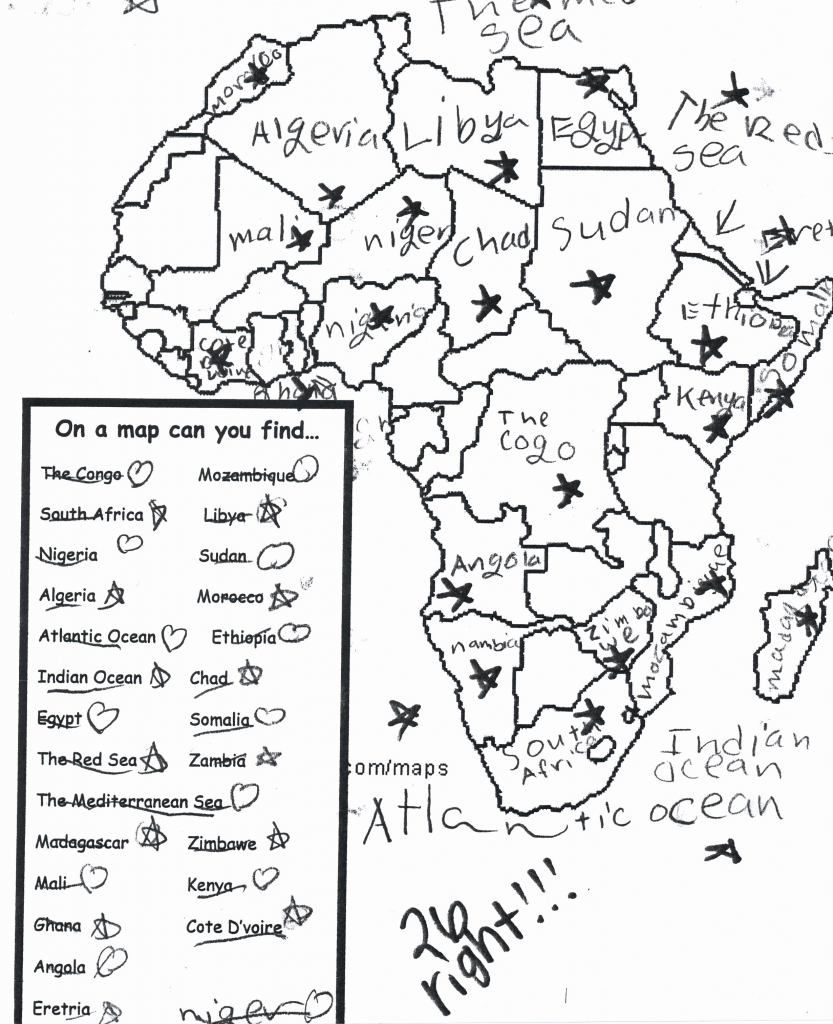 The Med
sea
Morocco
Algeria
Libya
Egypt
The Red
sea
mali
niger
Chad
Sudan
Eret
Ethiopia
Somalia
nigeria
Cote
D'
voire
Ghana
Kenya
The
Cogo
Angola
nambia
Zimba
we
mozambique
madagascar
South
Africa
Indian
ocean
Atlantic ocean
com/maps
26
right!!!
On a map can you find...
The Congo Mozambique
South Africa Libya
Nigeria Sudan
Algeria Morocco
Atlantic Ocean Ethiopia
Indian Ocean Chad
Egypt Somalia
The Red Sea Zambia
The Mediterranean Sea
Madagascar Zimbawe
Mali Kenya
Ghana Cote D'voire
Angola
Eretria niger